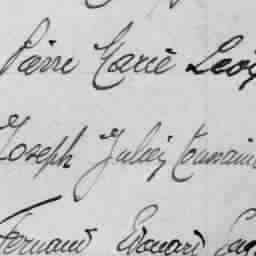 Pierre Marie Léon
Joseph Julien Toussaint
Fernand Edouard